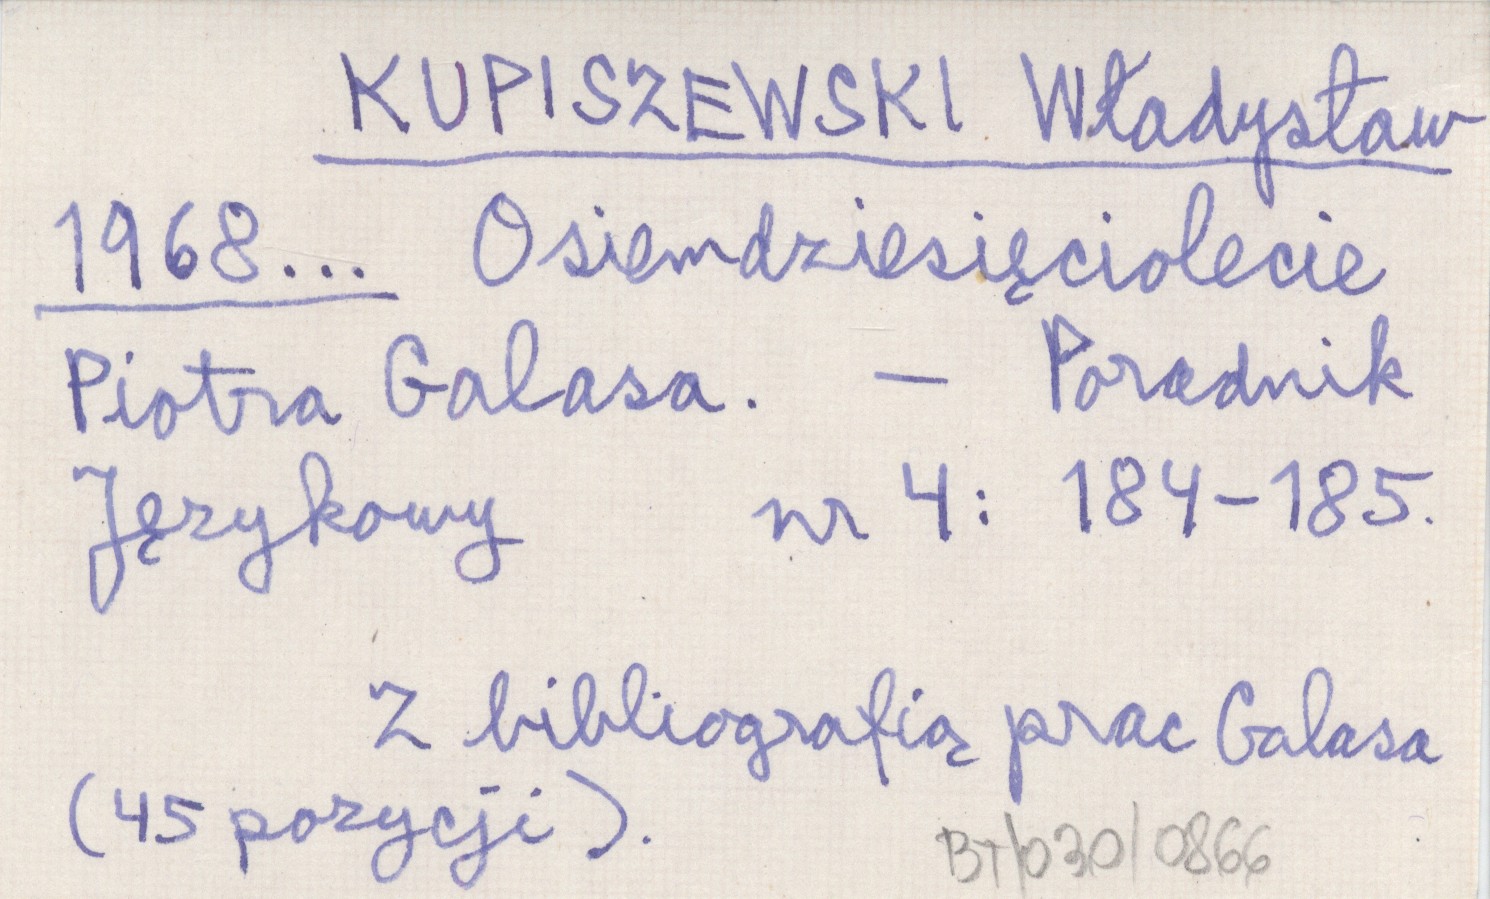 KUPISZEWSKI Władysław
1968... Osiemdziesięciolecie
Piotra Galasa. — Poradnik
Językowy nr 4: 184-185.
Z bibliografią prac Galasa
(45 pozycji).
BT/030/0866